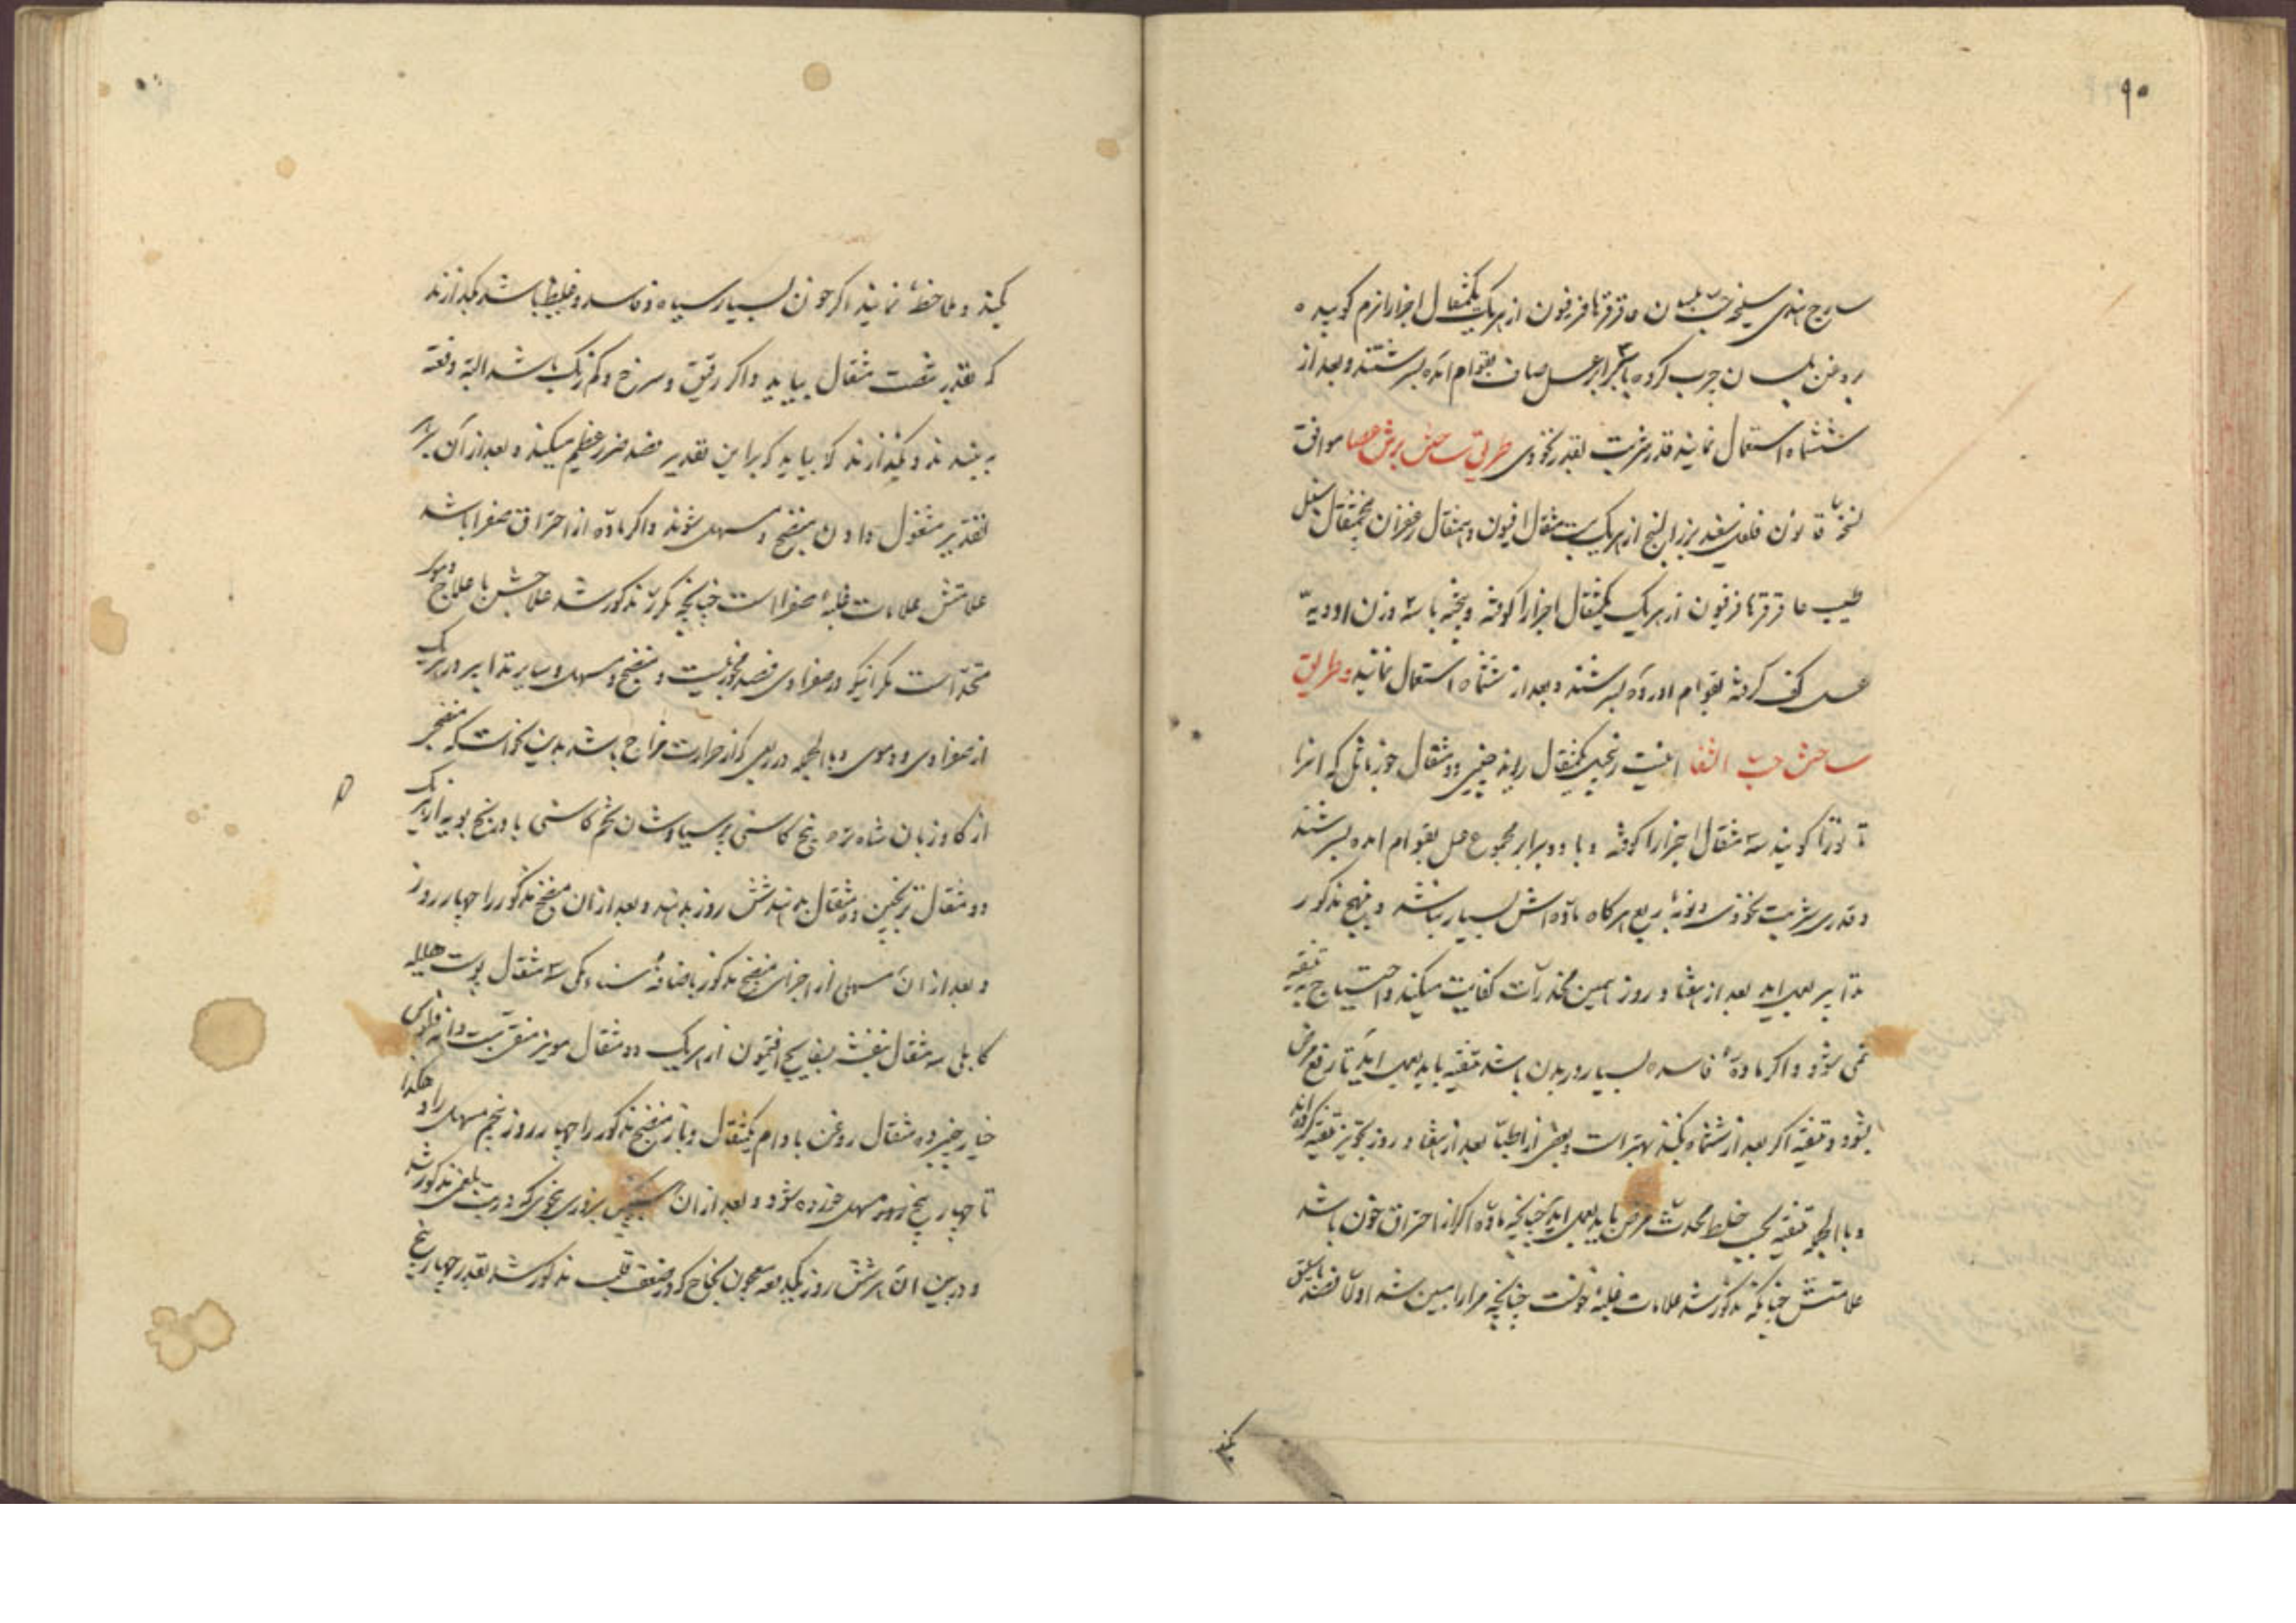 ۹۰
ساذج هندی سلیخه حب بلسان عاقرقرحا فرفیون از هریک یکمثقال اجزا را نرم کوبیده
بروغن بلسان چرب کرده با سه برابر عسل صاف بقوام آمده بسرشند و بعد از
ششماه استعمال نمایند قدر شربت بقدر نخودی طریق ساختن برش موافق
نسخه قانون فلفل سفید بزرالبنج از هریک بیست مثقال افیون ده مثقال زعفران پنجمثقال سنبل
طیب عاقرقرحا فرفیون از هریک یکمثقال اجزا را کوفته و بیخته با سه وزن ادویه
عسل کف گرفته بقوام آورده بسرشند و بعد از ششماه استعمال نمایند و طریق
ساختن حب الشفا اینست زنجبیل یکمثقال ریوند چینی دو مثقال جوز ماثل که انرا
تاتوره گویند سه مثقال اجزا را کوفته و با دو برابر مجموع عسل بقوام امده بسرشند
و قدری شربت نخودی و نوبهٔ ربع هرکاه ماده‌اش بسیار نباشد و بنهج مذکور
تدابیر بعمل اید بعد از هفتاد روز همین مخدرات کفایت میکند و احتیاج به تنقیه
نمی شود و اگر مادهٔ فاسده بسیار در بدن باشد تنقیه باید بعمل اید تا رفع مرض
بشود و تنقیه اکر بعد از ششماه بکنند بهتر است و بعضی از اطبا بعد از هفتاد روز تجویز تنقیه کرده‌اند
و بالجمله تنقیه بحسب خلط محدث مرض باید بعمل اید چنانچه ماده اکر از احتراق خون باشد
علامتش چنانکه مذکور شد علامات غلبهٔ خونست چنانچه مرارا مبین شد اولا فصد باسلیق
کنند
کنند و ملاحظه نمایند اگر خون بسیار سیاه و فاسد و غلیظ باشد بگذارند
که بقدر شصت مثقال بیاید و اکر رقیق و سرخ و کم رنگ باشد البته دفعة
به بندند و نگذارند که بیاید که براین تقدیر فصد ضرر عظیم میکند و بعد از آن بهر
تقدیر مشغول دادن منضج و مسهل شوند و اکر ماده از احتراق صفرا باشد
علامتش علامات غلبهٔ صفرا است چنانچه مکرر مذکور شد علاجش با علاج دموی
متحد است مگر آنکه در صفراوی فصد مجوز نیست و منضج و مسهل و سایر تدابیر در هریک
از صفراوی و دموی و بالجمله در ربعی که از حرارت مزاج باشد بدین نحو است که منضجی
از کاوزبان شاه تره بیخ کاسنی پرسیاوشان تخم کاسنی بادرنجبویه از هریک
دو مثقال ترنجبین ده مثقال بدهند شش روز بدهند و بعد ازان منضج مذکور را چهار روز
و بعد ازان مسهلی از اجزای منضج مذکور باضافهٔ سناء مکی سه مثقال پوست هلیله
کابلی سه مثقال بنفشه بسفایج افتیمون از هریک دو مثقال مویز منقی بیست دانه فلوس
خیار چنبر ده مثقال روغن بادام یکمثقال و باز منضج مذکور را چهار روز پنجم مسهل را و هکذا
تا چهار پنج مسهل خورده شود و بعد ازان بزوری بنحوی که در تب بلغمی مذکور شد
و در بین آن هر شش روز یکدفعه معجون نجاح که در ضعف قلب مذکور شد بقدر چهار پنج